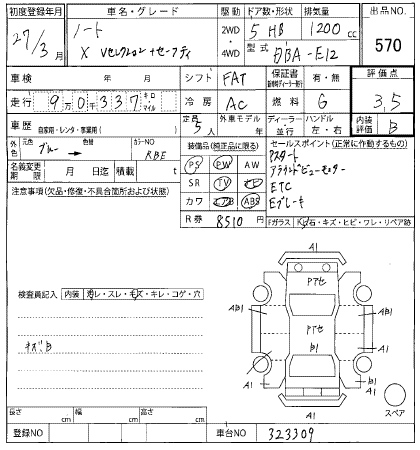 初度登録年月 車名・グレード 駆動 ドア数・形状 排気量 出品NO.
27/3月 ノート 2WD 5 HB 1200 cc 570
X Vセレクション+セーフティ 4WD 型式 DBA-E12
車検 年 月 シフト FAT 保証書 有・無 評価点
走行 9万0千337 キロ マイル 冷房 AC 燃料 G 3,5
車歴 自家用・レンタ・事業用( ) 定員 5人 外車モデル 年 ディーラー 並行 ハンドル 左・右 内装評価 B
元色 ブルー 色替 カラーNO RBE 装備品(純正品に限る) セールスポイント(正常に作動するもの)
名義変更期限 月 日迄 積載 t PS PW AW アスタート
注意事項(欠品・修復・不具合箇所および状態) SR TV ナビ アラウンドビューモニター
カワ エアB ABS ETC
R券 8510 円 Eブレーキ
Fガラス 石・キズ・ヒビ・ワレ・リペア跡
A1
Pアセ
AB1 Pアセ AB1
B1
A1 A1
A1
スペア
検査員記入 内装 ヨゴレ・スレ・キズ・キレ・コゲ・穴
キズB
長さ cm 幅 cm 高さ cm
登録NO 車台NO 323309